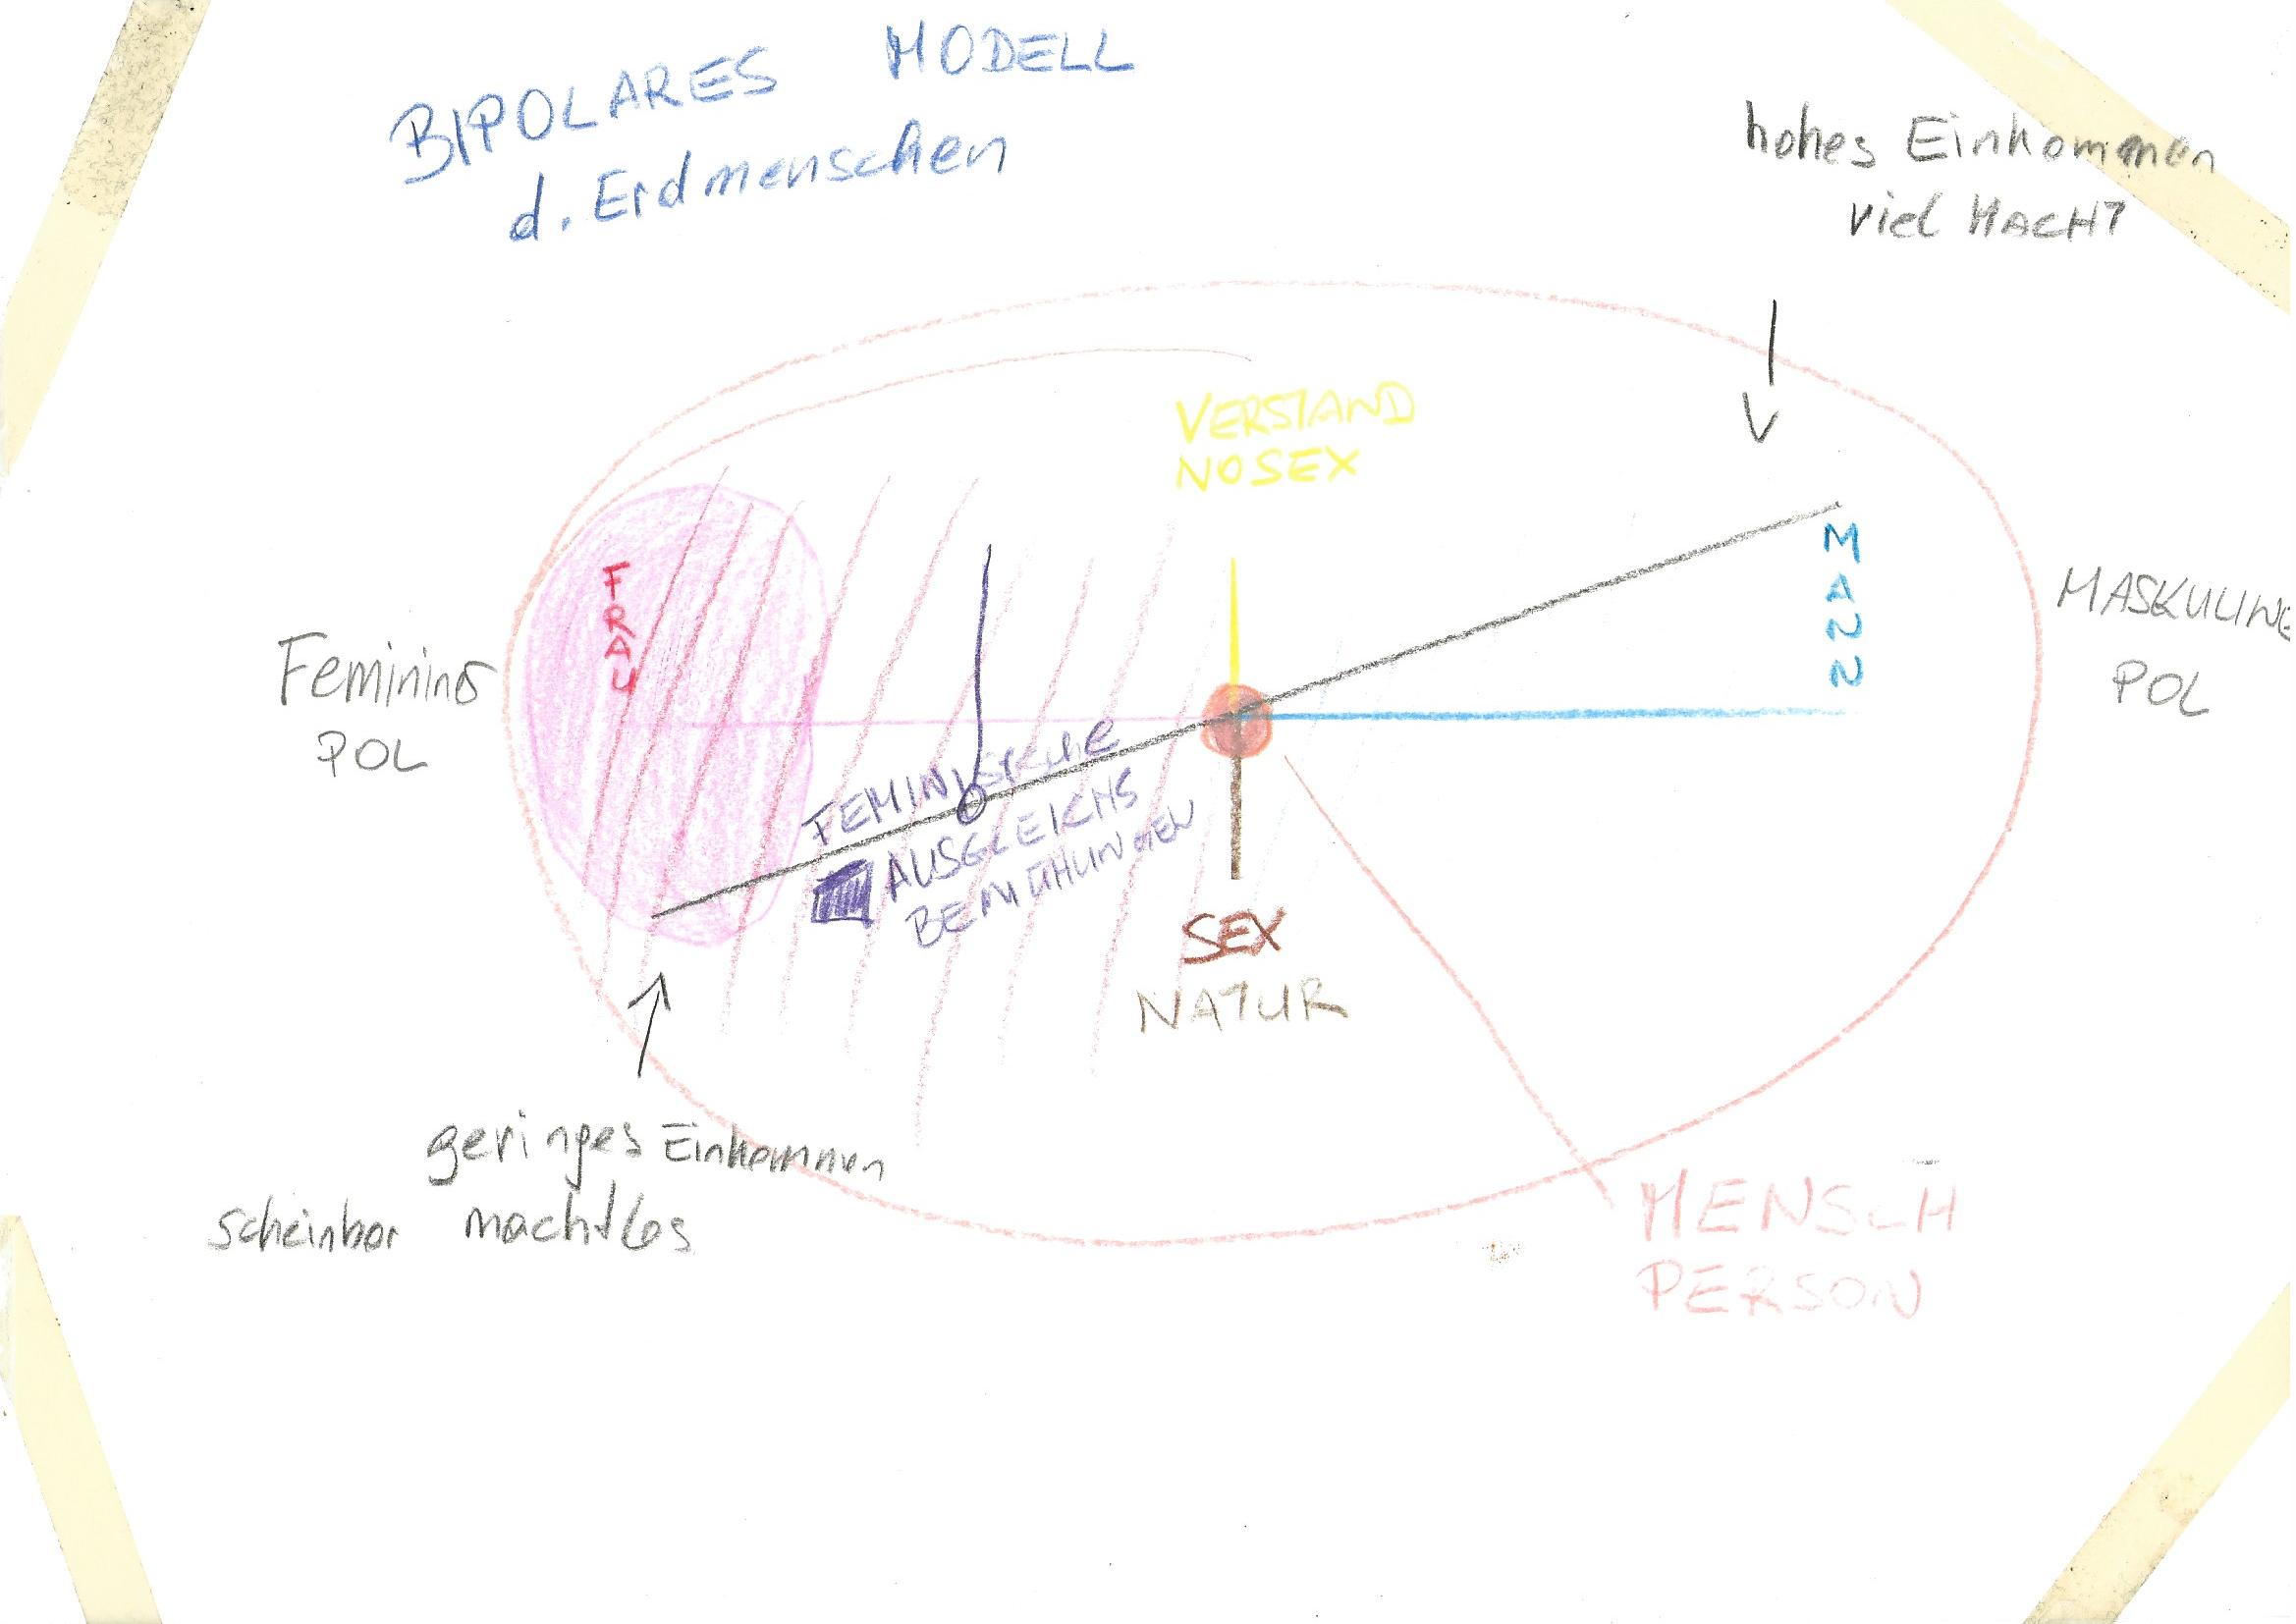 BIPOLARES MODELL
d. Erdmenschen
hohes Einkommen
viel MACHT
VERSTAND
NO SEX
FRAU
MANN
Feminine
POL
MASKULINE
POL
FEMINISTISCHE
AUSGLEICHS
BEMÜHUNGEN
SEX
NATUR
geringes Einkommen
scheinbar machtlos
MENSCH
PERSON